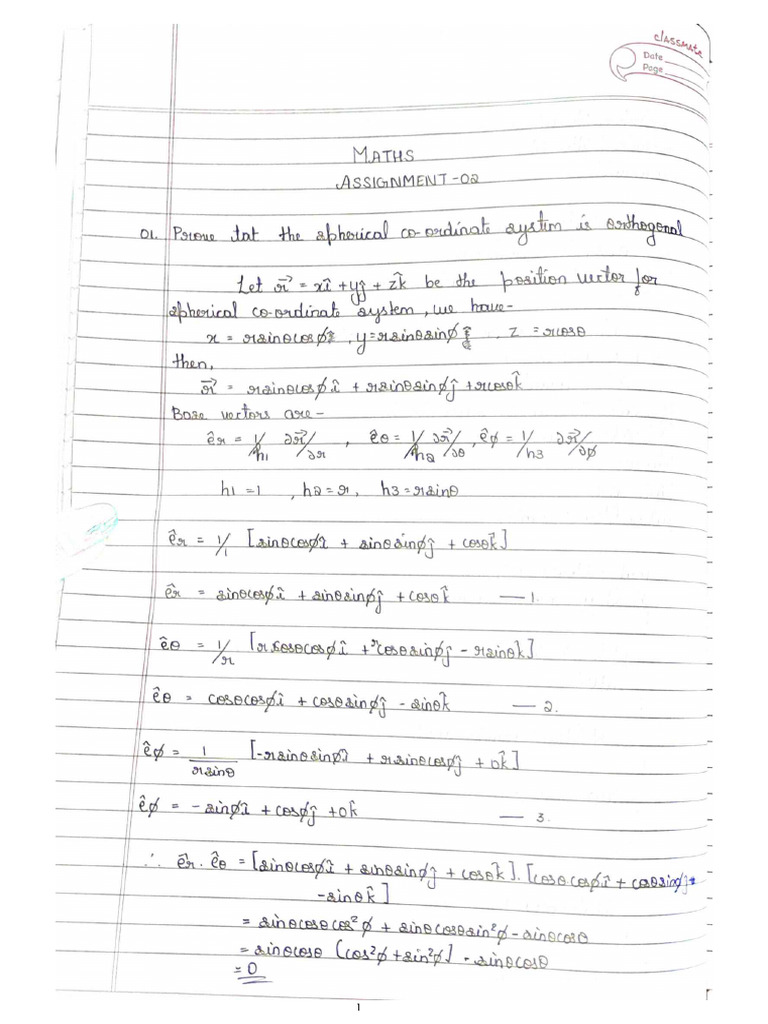 classmate
Date
Page
MATHS
ASSIGNMENT-02
01. Prove tat the spherical co-ordinate system is orthogonal
Let r⃗ = xî + yĵ + zk̂ be the position vector for
spherical co-ordinate system, we have-
x = rsinθcosϕ , y=rsinθsinϕ , z = rcosθ
then,
r⃗ = rsinθcosϕî + rsinθsinϕĵ + rcosθk̂
Base vectors are-
êr = 1/h1 ∂r⃗/∂r , êθ = 1/h2 ∂r⃗/∂θ , êϕ = 1/h3 ∂r⃗/∂ϕ
h1 =1 , h2 = r, h3 = rsinθ
êr = 1/1 [sinθcosϕî + sinθsinϕĵ + cosθk̂]
êr = sinθcosϕî + sinθsinϕĵ + cosθk̂ — 1.
êθ = 1/r [rcosθcosϕî + rcosθsinϕĵ - rsinθk̂]
êθ = cosθcosϕî + cosθsinϕĵ - sinθk̂ — 2.
êϕ = 1/rsinθ [-rsinθsinϕî + rsinθcosϕĵ + 0k̂]
êϕ = - sinϕî + cosϕĵ + 0k̂ — 3.
∴ êr . êθ = [sinθcosϕî + sinθsinϕĵ + cosθk̂] . [cosθcosϕî + cosθsinϕĵ
-sinθk̂]
= sinθcosθcos²ϕ + sinθcosθsin²ϕ - sinθcosθ
= sinθcosθ [cos²ϕ + sin²ϕ] - sinθcosθ
= 0
1